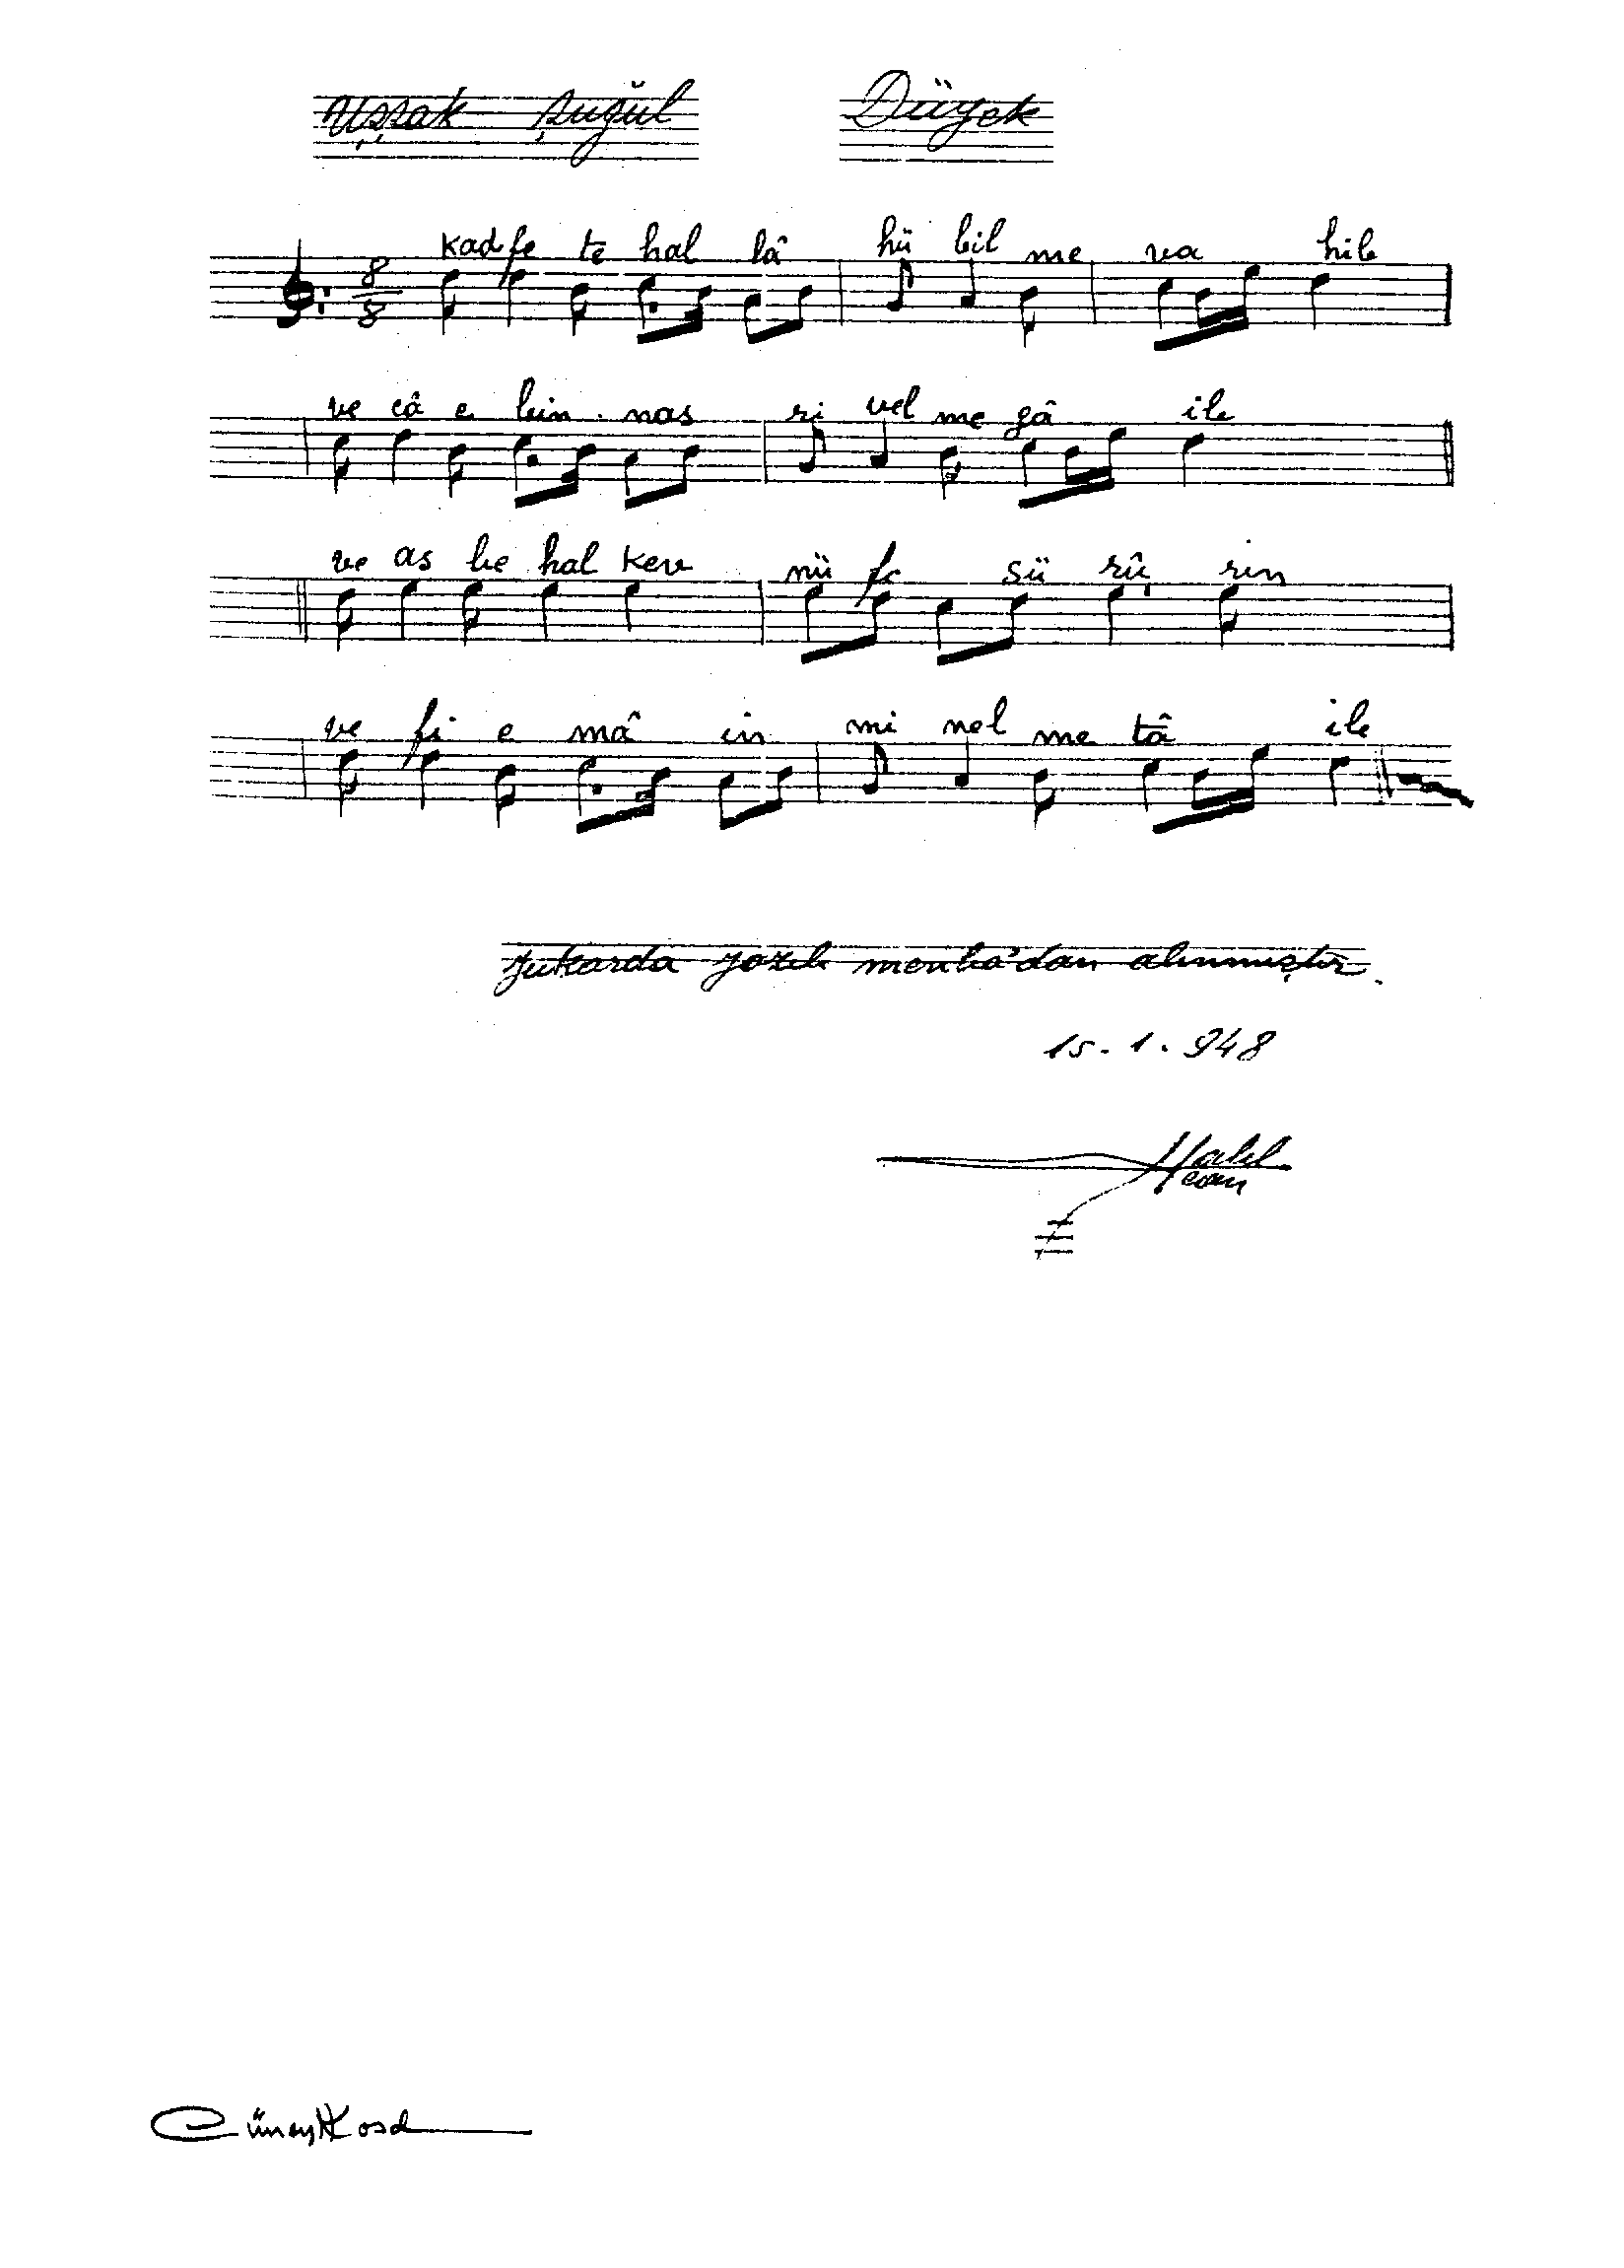 Uşşak şuğul Düyek
kad fe te hal lâ hü bil me va hile
8
8
ve câ e bin nas ri vel me gâ ile
ve as be hal kev nü fi sü rû rin
ve fi e mâ in mi nel me tâ ile
Yukarda yazılı menba'dan alınmıştır.
15.1.948
Halil
can
Cüneyt Kosal